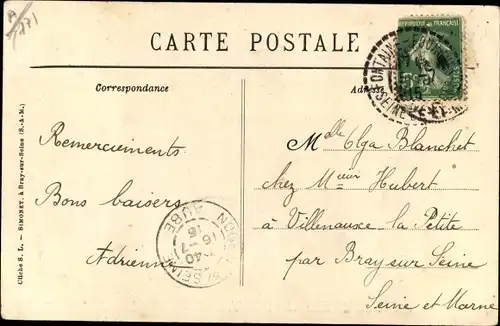 A
271
CARTE POSTALE
REPUBLIQUE FRANÇAISE
Correspondance
Adresse
Remerciements
Bons baisers
Adrienne
Melle Olga Blanchet
chez Mr Hubert
à Villenauxe la Petite
par Bray sur Seine
Seine et Marne
AUBE
16 -7
40
15
Cliché S. L. - SIMONET, à Bray-sur-Seine (S.-&-M.)